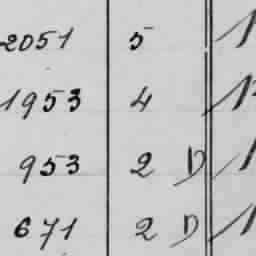 2051 5
1953 4
953 2 D
671 2 D